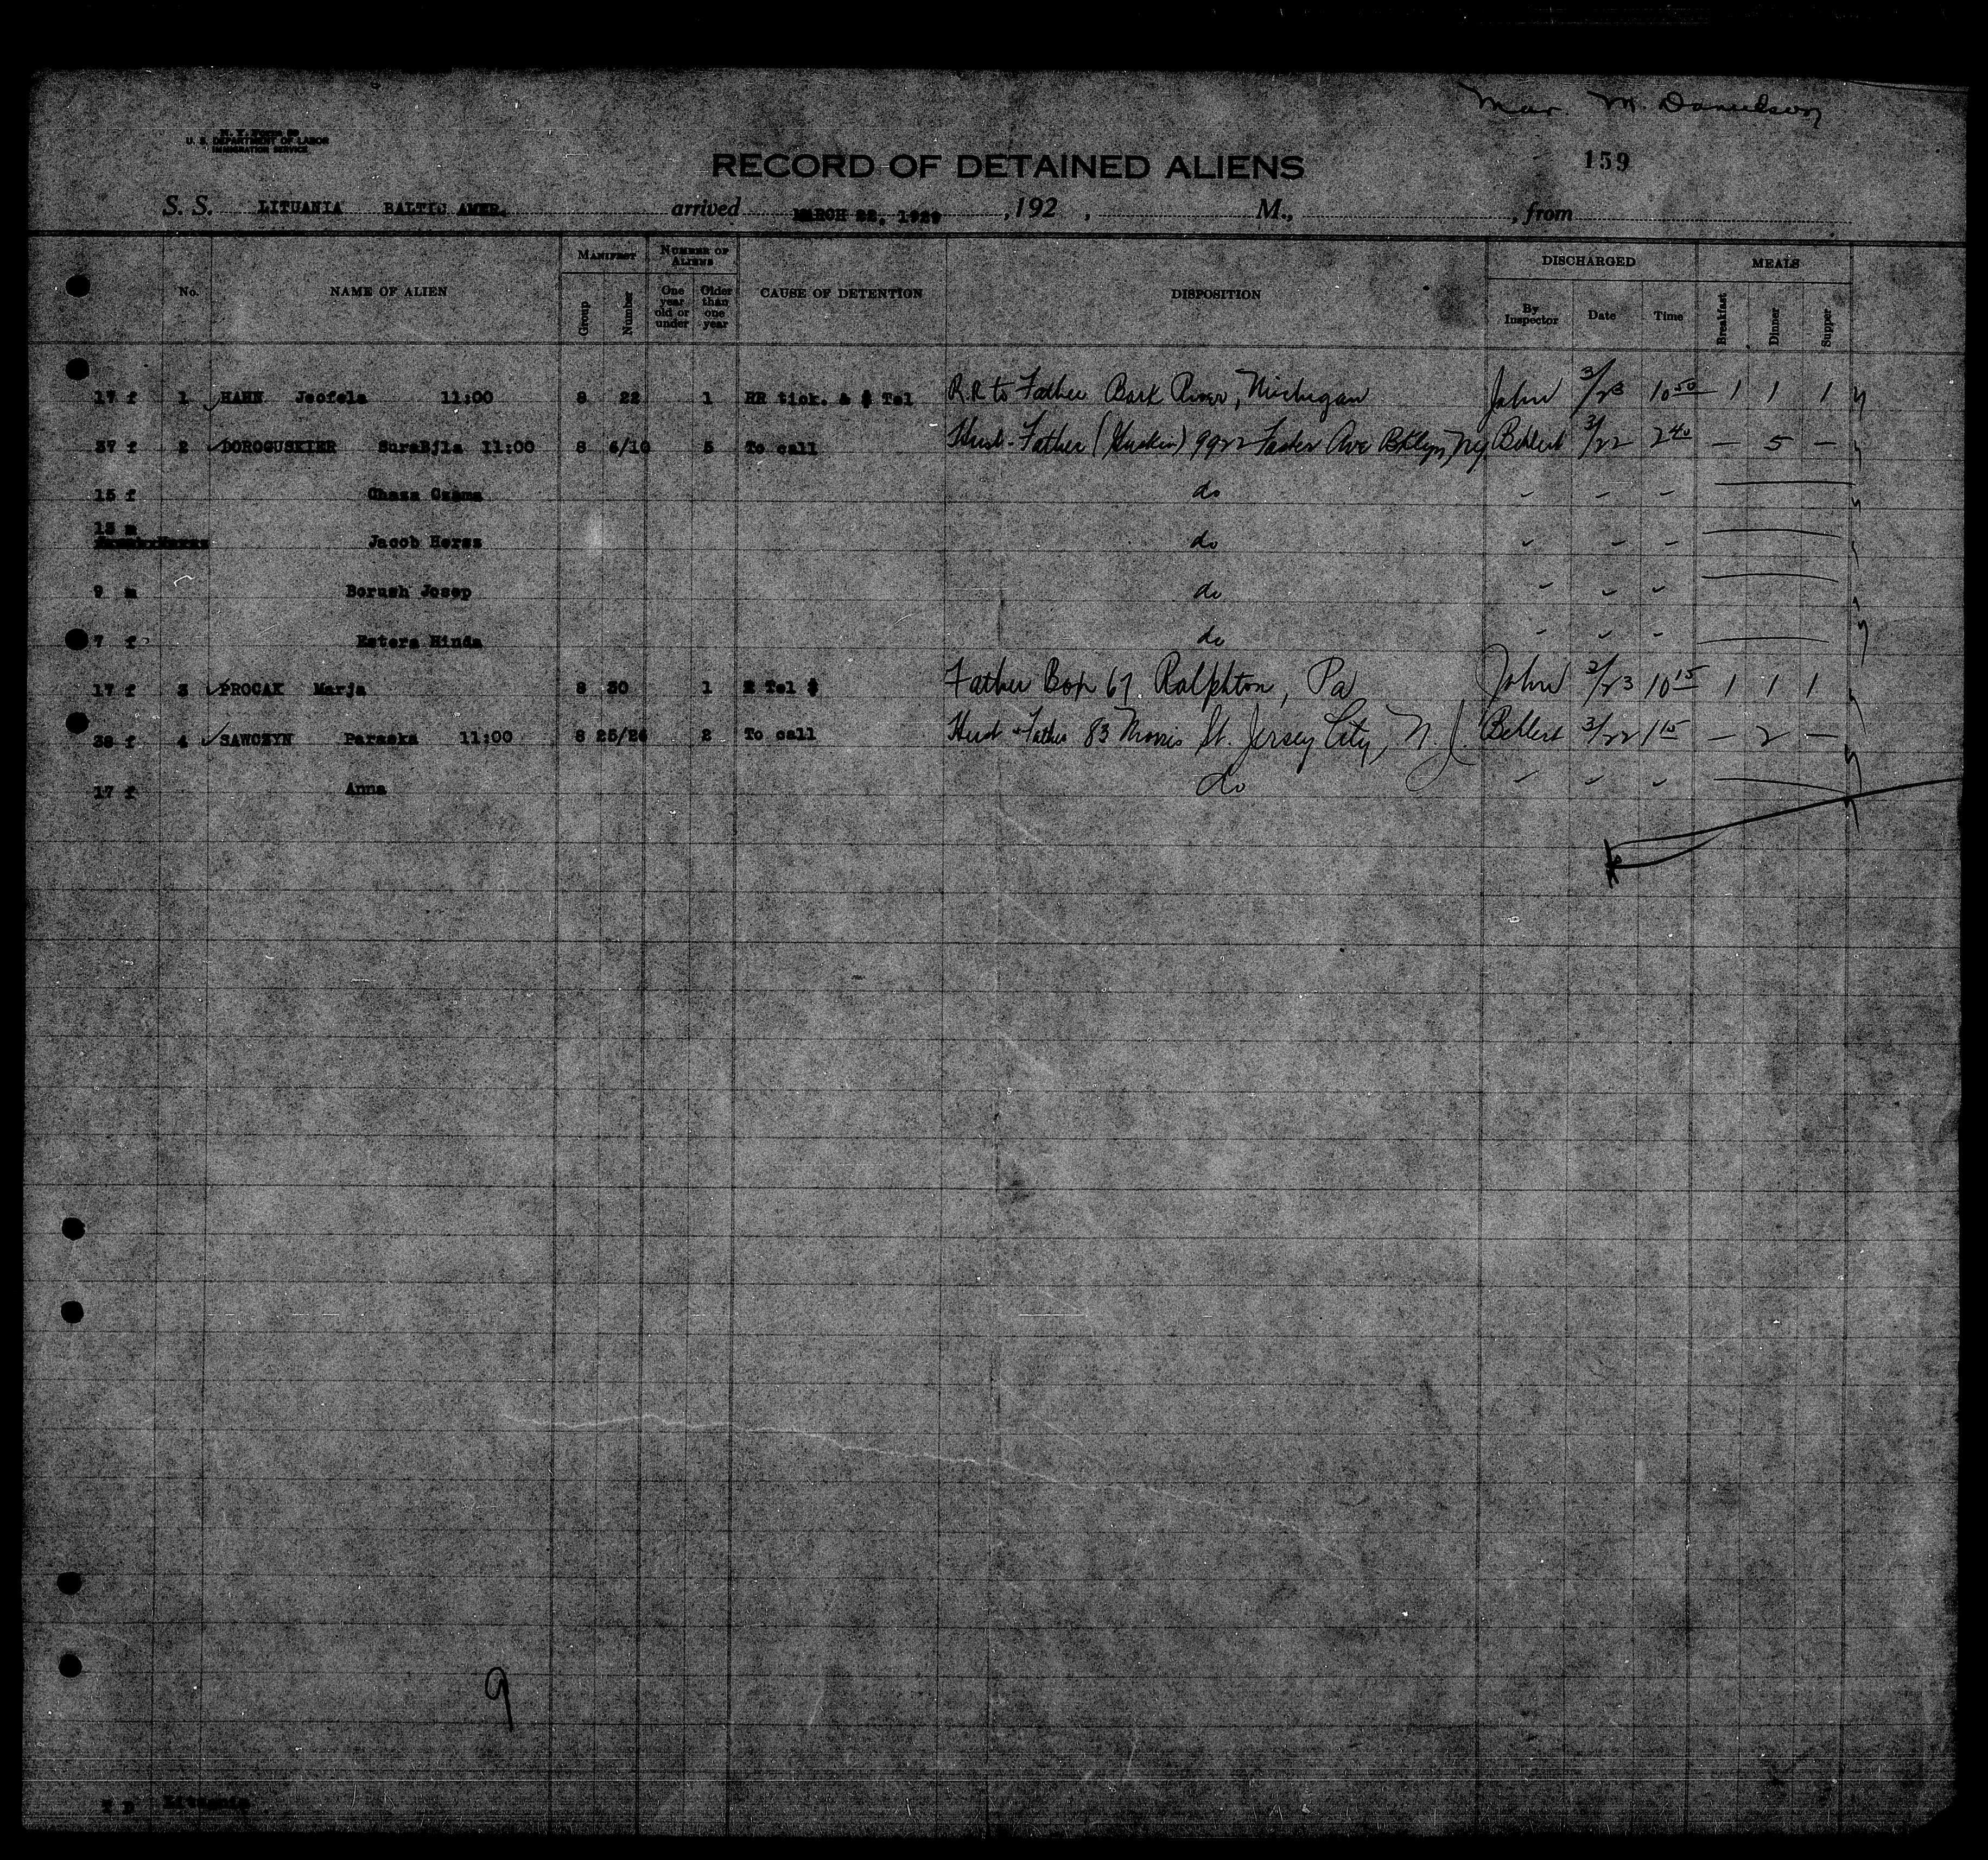 Mar. M. Danielson
N. Y. Form 89
U. S. DEPARTMENT OF LABOR
IMMIGRATION SERVICE
RECORD OF DETAINED ALIENS 159
S. S. LITUANIA BALTIC AMER. arrived MARCH 22, 1929 , 192 , M., , from
No. NAME OF ALIEN MANIFEST Group Number NUMBER OF ALIENS One year old or under Older than one year CAUSE OF DETENTION DISPOSITION DISCHARGED By Inspector Date Time MEALS Breakfast Dinner Supper
17 f 1 HAHN Jeofela 11:00 8 22 1 RR tick. & $ Tel R.R to Father Bark River, Michigan John 3/23 10 50 1 1 1
37 f 2 DOROGUSKIER SuraBjla 11:00 8 6/10 5 To call Husb - Father 9922 Ave Bklyn, Ny Beblert 3/22 2 40 — 5 —
15 f Chasa Czama do
13 m Jacob Hersz do
9 m Borush Josep do
7 f Estera Hinda do
17 f 3 PROCAK Marja 8 30 1 Tel $ Father Box 67 Ralphton, Pa John 3/23 10 15 1 1 1
38 f 4 SAWCZYN Paraska 11:00 8 25/26 2 To call Husb - Father 83 Morris St. Jersey City, N. J. Beblert 3/22 1 15 — 2 —
17 f Anna do
9
Lituania